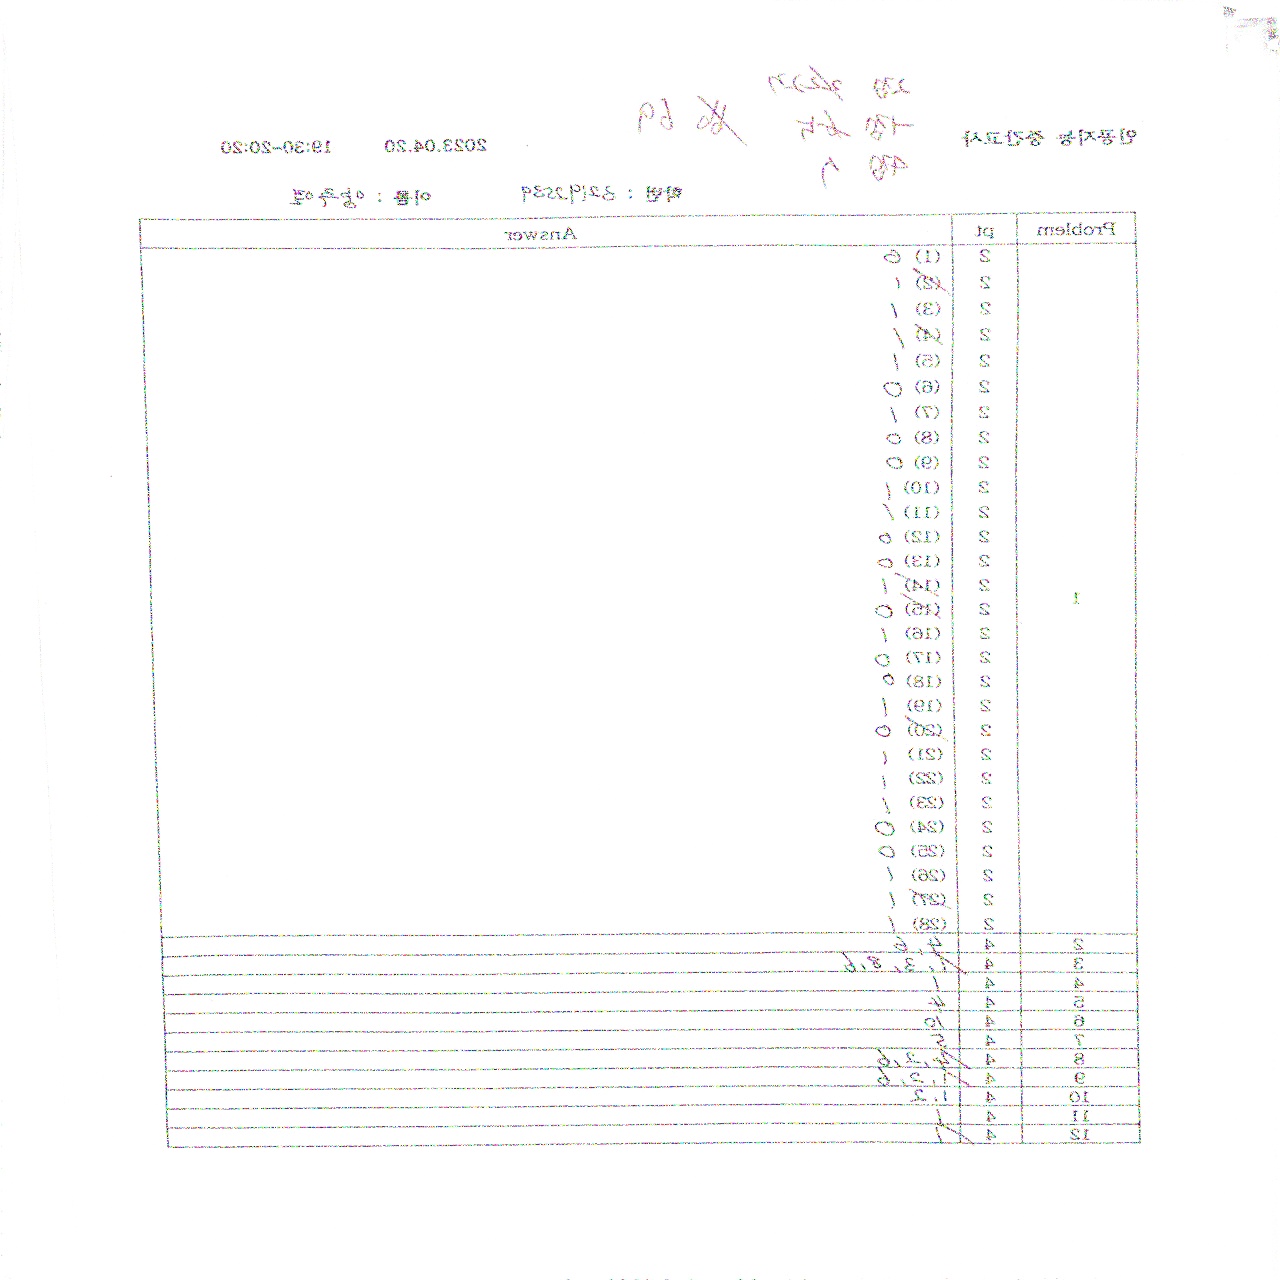 인공지능 중간고사 2023.04.20 19:30-20:20
69
학번 : 32192539 이름 :
Problem pt Answer
1
2 (1) 0
2 (2) 1
2 (3) 1
2 (4) 1
2 (5) 1
2 (6) 0
2 (7) 1
2 (8) 0
2 (9) 0
2 (10) 1
2 (11) 1
2 (12) 0
2 (13) 0
2 (14) 1
2 (15) 0
2 (16) 1
2 (17) 0
2 (18) 0
2 (19) 1
2 (20) 0
2 (21) 1
2 (22) 1
2 (23) 1
2 (24) 0
2 (25) 0
2 (26) 1
2 (27) 1
2 (28) 1
2 4
3 4 1, 3, 8, 6
4 4 1
5 4 4
6 4 10
7 4
8 4
9 4 1, 2, 6
10 4 1.2
11 4 1
12 4 1